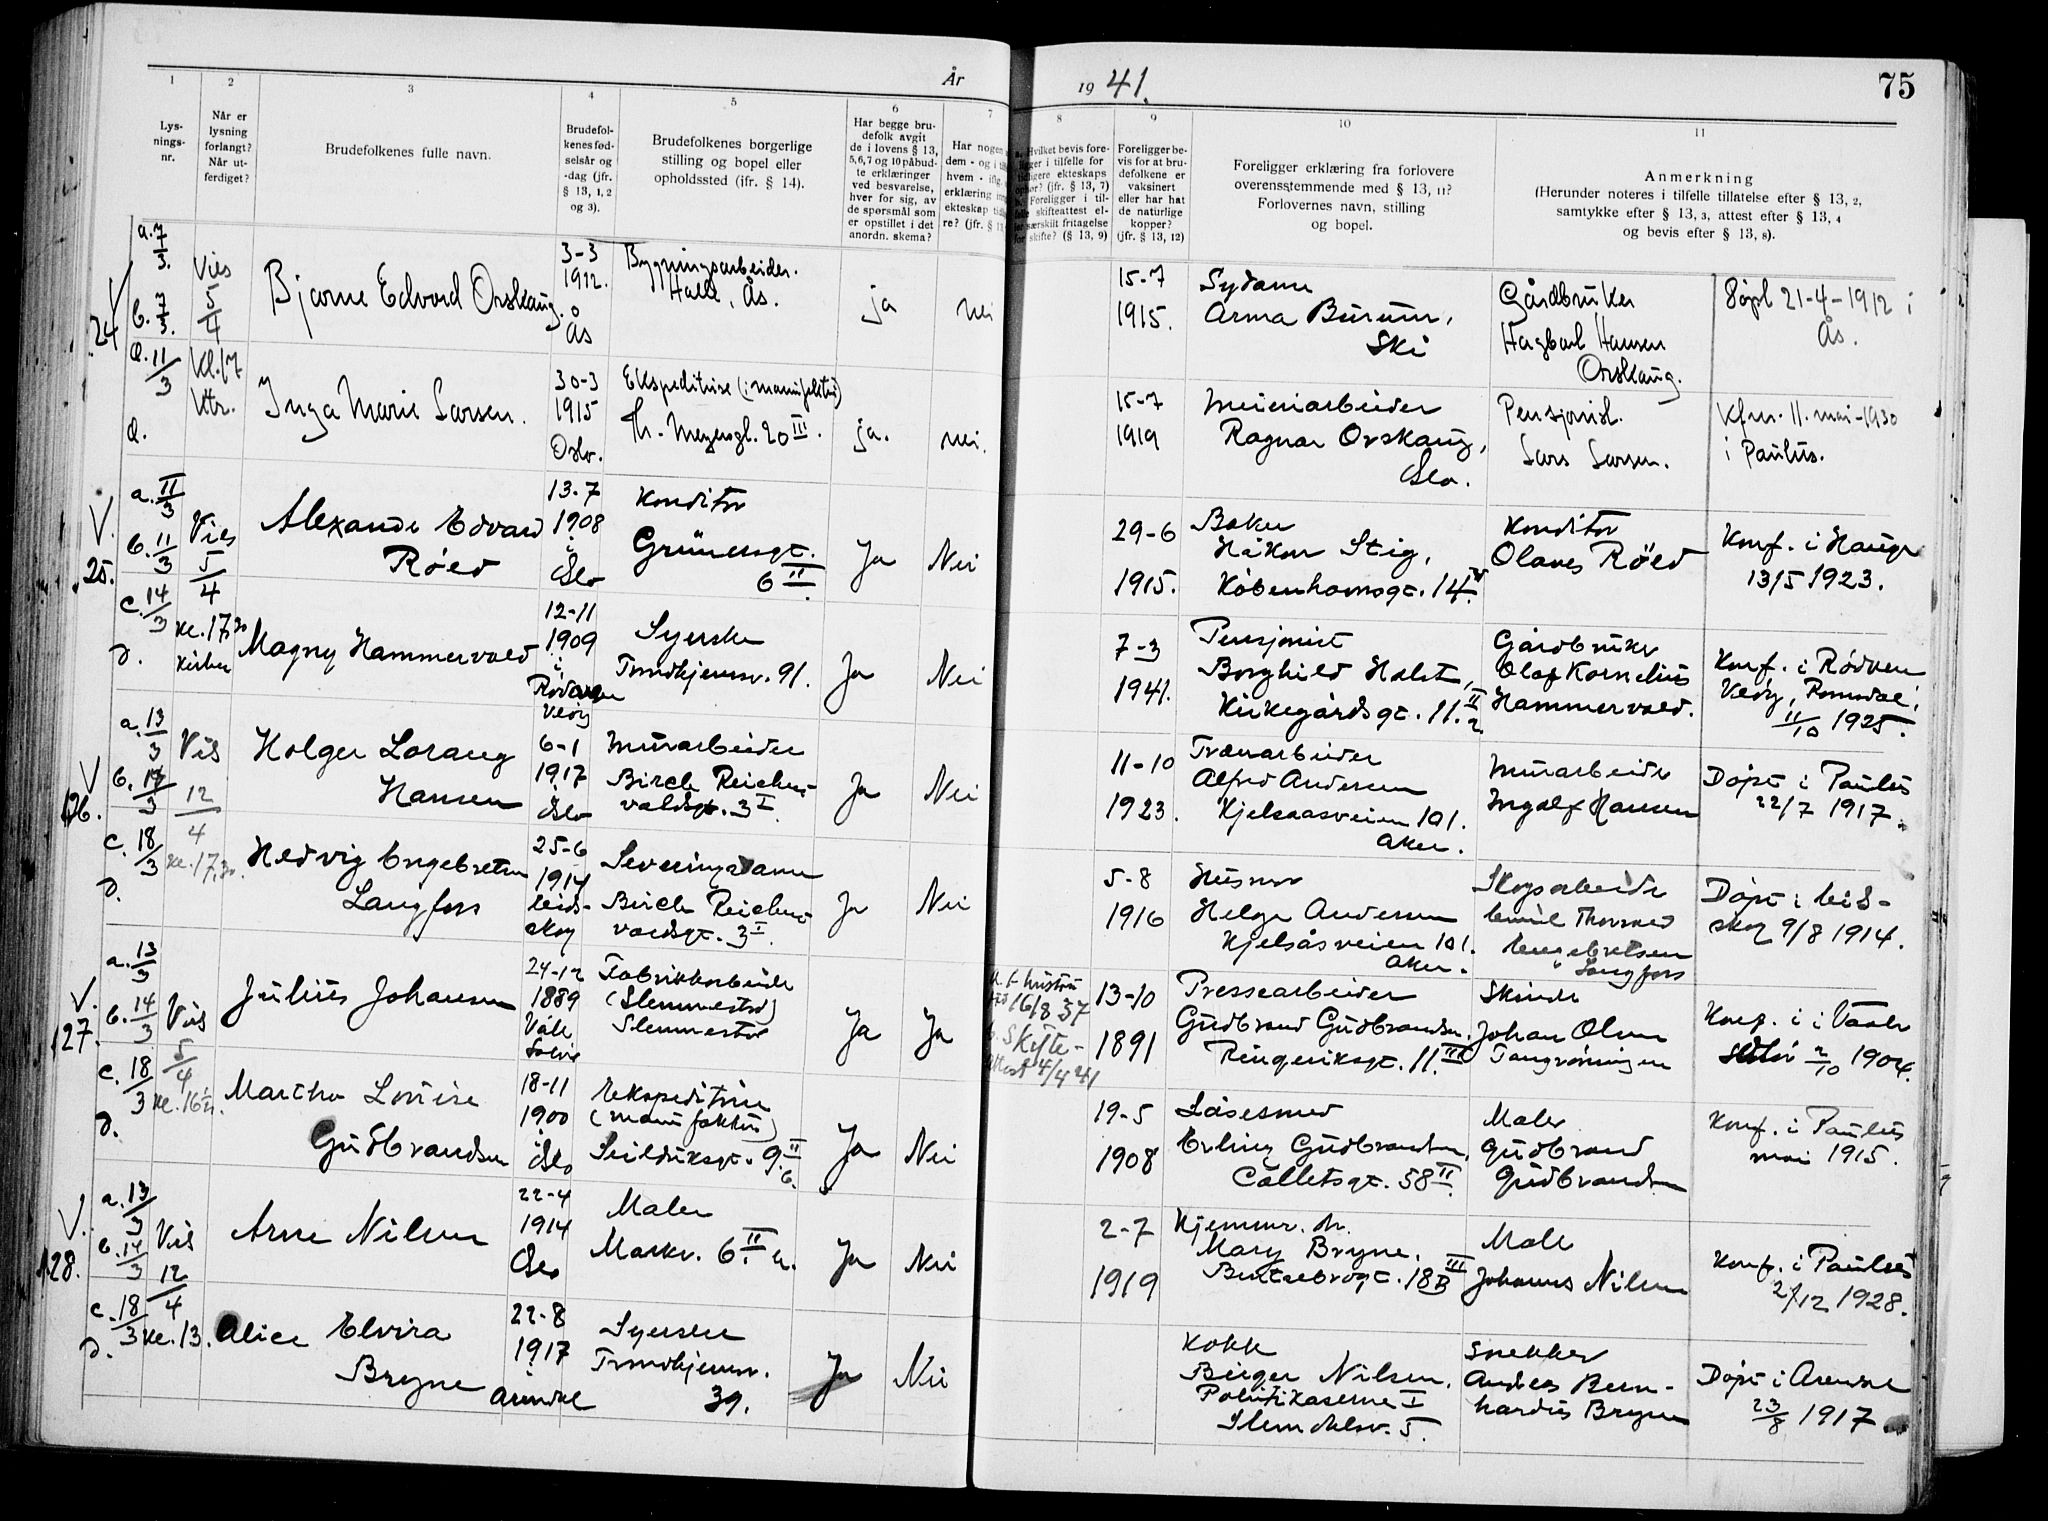 År
19 41.
75
1
2
3
4
5
6
7
8
9
10
11
Lys-
nings-
nr.
Når er
lysning
forlangt?
Når ut-
ferdiget?
Brudefolkenes fulle navn.
Brudefol-
kenes fød-
selsår og
-dag (jfr.
§ 13, 1, 2
og 3).
Brudefolkenes borgerlige
stilling og bopel eller
opholdssted (jfr. § 14).
Har begge bru-
defolk avgit
de i lovens § 13,
5,6,7 og 10 påbud-
te erklæringer
ved besvarelse,
hver for sig, av
de spørsmål som
er opstillet i det
anordn. skema?
Har nogen
dem - og i
hvem - ifig.
erklæring
ekteskap
re? (jfr. §
Hvilket bevis fore-
i tilfelle for
ekteskaps
(jfr. § 13, 7)
Foreligger i til-
skifteattest el-
særskilt fritagelse
skifte? (§ 13, 9)
Foreligger be-
vis for at bru-
defolkene er
vaksinert
eller har hat
de naturlige
kopper?
(jfr. § 13, 12)
Foreligger erklæring fra forlovere
overensstemmende med § 13, 11?
Forlovernes navn, stilling
og bopel.
Anmerkning
(Herunder noteres i tilfelle tillatelse efter § 13, 2,
samtykke efter § 13, 3, attest efter § 13, 4
og bevis efter § 13, 8).
24
a. 7/3.
b. 7/3.
c. 11/3
d.
Vies
5/4
Kl. 17
Bjarne Edvard Orskaug.
3-3
1912.
Ås
Bygningsarbeider.
Ås.
ja
nei
15-7
1915.
Sydame
Anna Burum,
Ski
Gårdbruker
Hagbart Hansen
Orskaug.
Døpt 21-4-1912 i
Ås.
Inga Marie Larsen.
30-3
1915
Oslo.
Th. Meyersgt. 20 III.
ja.
nei.
15-7
1919
Meieriarbeider
Ragnar Orskaug,
Oslo.
Pensjonist.
Lars Larsen.
Kfm. 11. mai-1930
i Paulus.
V.
25.
a. 11/3
b. 11/3
c. 14/3
d.
Vies
5/4
kl. 17,30
kirken
Alexander Edvard
Røed
13-7
1908
i
Oslo
Konditor
Grünersgt.
6 II.
Ja
Nei
29-6
1915.
Baker
Håkon Stig,
Københavnsgt. 14
Konditor
Olaves Røed
Konf. i Hauge
13/5 1923.
Magny Hammervold
12-11
1909
i
Rødven
Veøy
Syerske
Trondhjemsv. 91.
Ja
Nei
7-3
1941.
Pensjonist
Borghild Holst,
Kirkegårdsgt. 11. II
Gårdbruker
Olaf Kornelius
Hammervold.
Konf. i Rødven
Veøy, Romsdal,
11/10 1925.
V
126.
a. 13/3
b. 14/3
c. 18/3
d.
Vies
12/4
kl. 17,30.
Holger Lorang
Hansen
6-1
1917
i
Oslo
Murarbeider
Birch Reichen-
valdsgt. 3 I.
Ja
Nei
11-10
1923.
Alfred Andersen
Kjelsaasveien 101.
Aker.
Murarbeider
Ingolf Hansen
Døpt i Paulus
22/7 1917.
Hedvig Engebretsen
Langfoss
25-6
1914
Eids-
skog
Serveringsdame
Birch Reichen-
valdsgt. 3 I.
Ja
Nei
5-8
1916
Husmor
Helga Andersen
Kjelsåsveien 101.
Aker.
Skogsarbeider
Emil Thorvald
Engebretsen
Langfoss
Døpt i Eid-
skog 9/8 1914.
V.
127.
a. 13/3
b. 14/3
c. 18/3
d.
Vies
5/4
Julius Johansen
24-12
1889
Våler
Solør
Fabrikkarbeider
(Slemmestad)
Slemmestad
Ja
Ja
16/8 37
b. Skifte-
attest 4/4 41
13-10
1891
Pressearbeider
Gudbrand Gudbrandsen.
Ringeriksgt. 11. III
Johan Olsen
Konf. i Vaaler
Solør 2/10 1904.
Martha Lovise
Gudbrandsen
18-11
1900
i
Oslo
Ekspeditrise
(manufaktur)
Seilduksgt. 9. II
Ja
Nei
19-5
1908
Låsesmed
Erling Gudbrandsen,
Colletsgt. 58 II.
Maler
Gudbrand
Gudbrandsen
Konf. i Paulus
mai 1915.
V.
128.
a. 13/3
b. 14/3
c. 18/3
d.
Vies
12/4
kl. 13.
Arne Nilsen
22-4
1914
Oslo
Maler
Markv. 6 II.
Ja
Nei
2-7
1919
Mary Bryne.
Bentsebrogt. 18B III
Maler
Johannes Nilsen
Konf. i Paulus
2/12 1928.
Alice Elvira
Bryne
22-8
1917
i
Arendal
Syerske
Trondhjemsv.
39.
Ja
Nei
Kokk
Birger Nilsen.
Politikaserne I
Slemdalsv. 5.
Snekker
Anders Bern-
hardus Bryne
Døpt i Arendal
23/8 1917